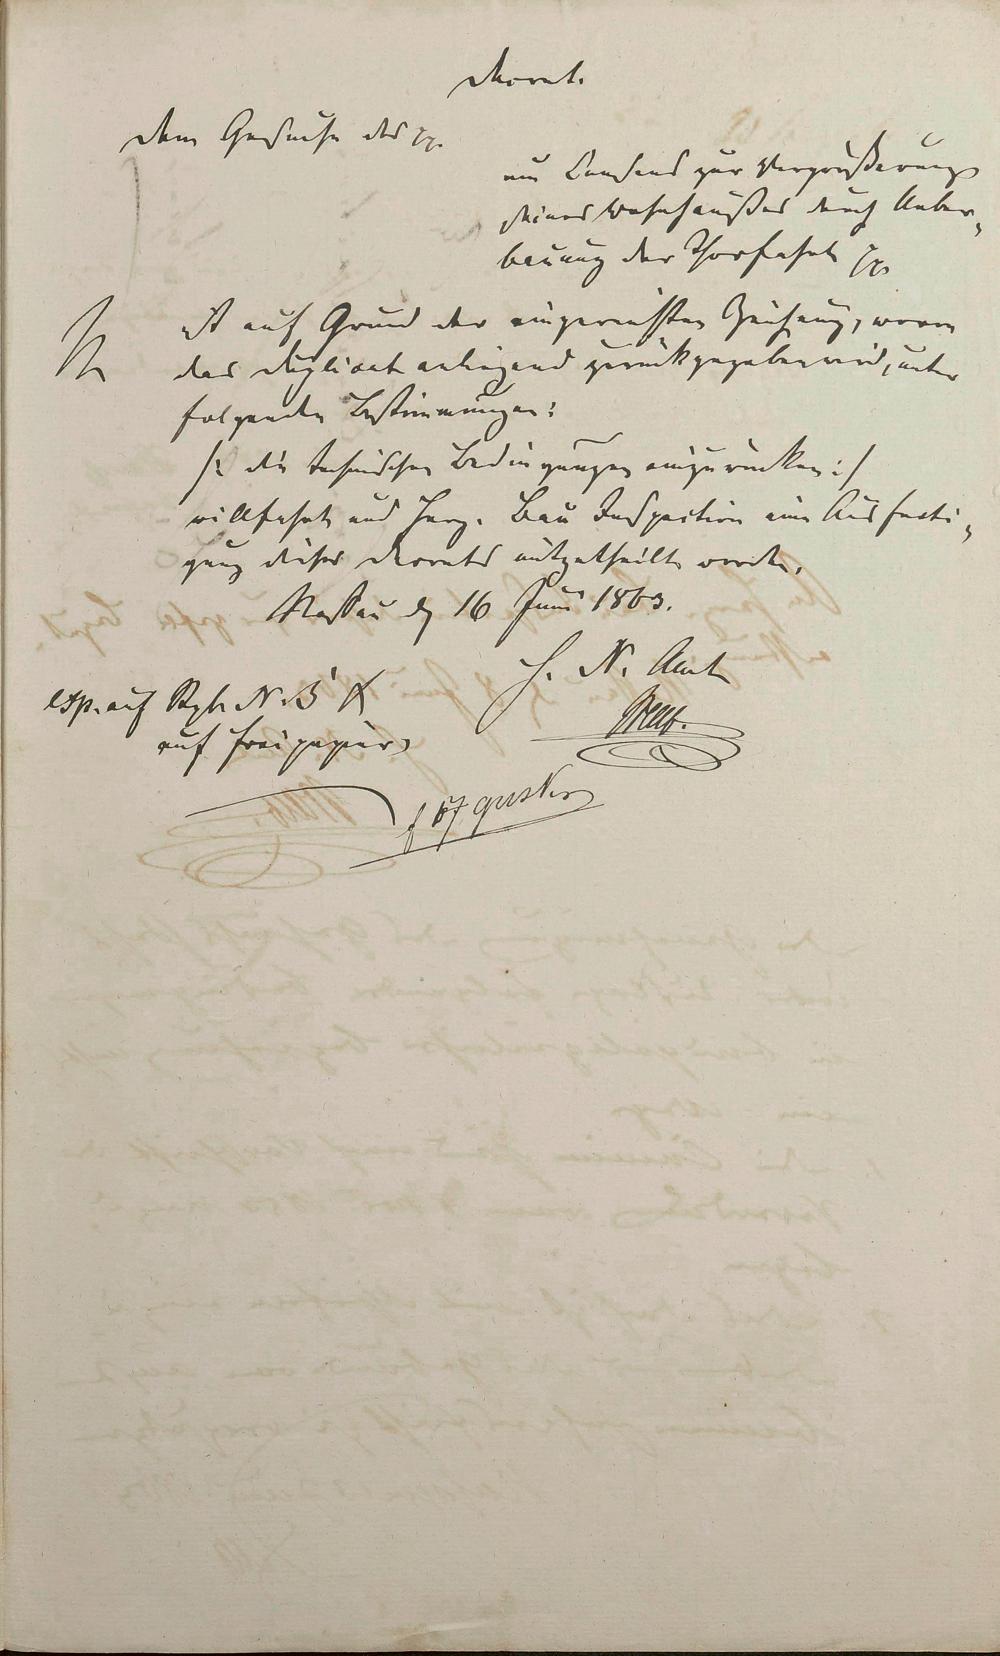 Decret.
Dem Gesuche des pp.
um Consens zur Vergrößerung
seines Wohnhaußes durch Ueber-
bauung der Thorfahrt pp.
ist auf Grund der eingereichten Zeichnung, wovon
das Duplicat anliegend zurückgegeben wird, unter
folgenden Bestimmungen:
/: die technischen Bedingungen einzurücken :/
willfahrt und Herz. Bau Inspection eine Ausferti-
gung dieses Decrets mitgetheilt worden.
Nassau d 16 Juni 1863.
H. N. Amt
exp. auf
auf freipapier